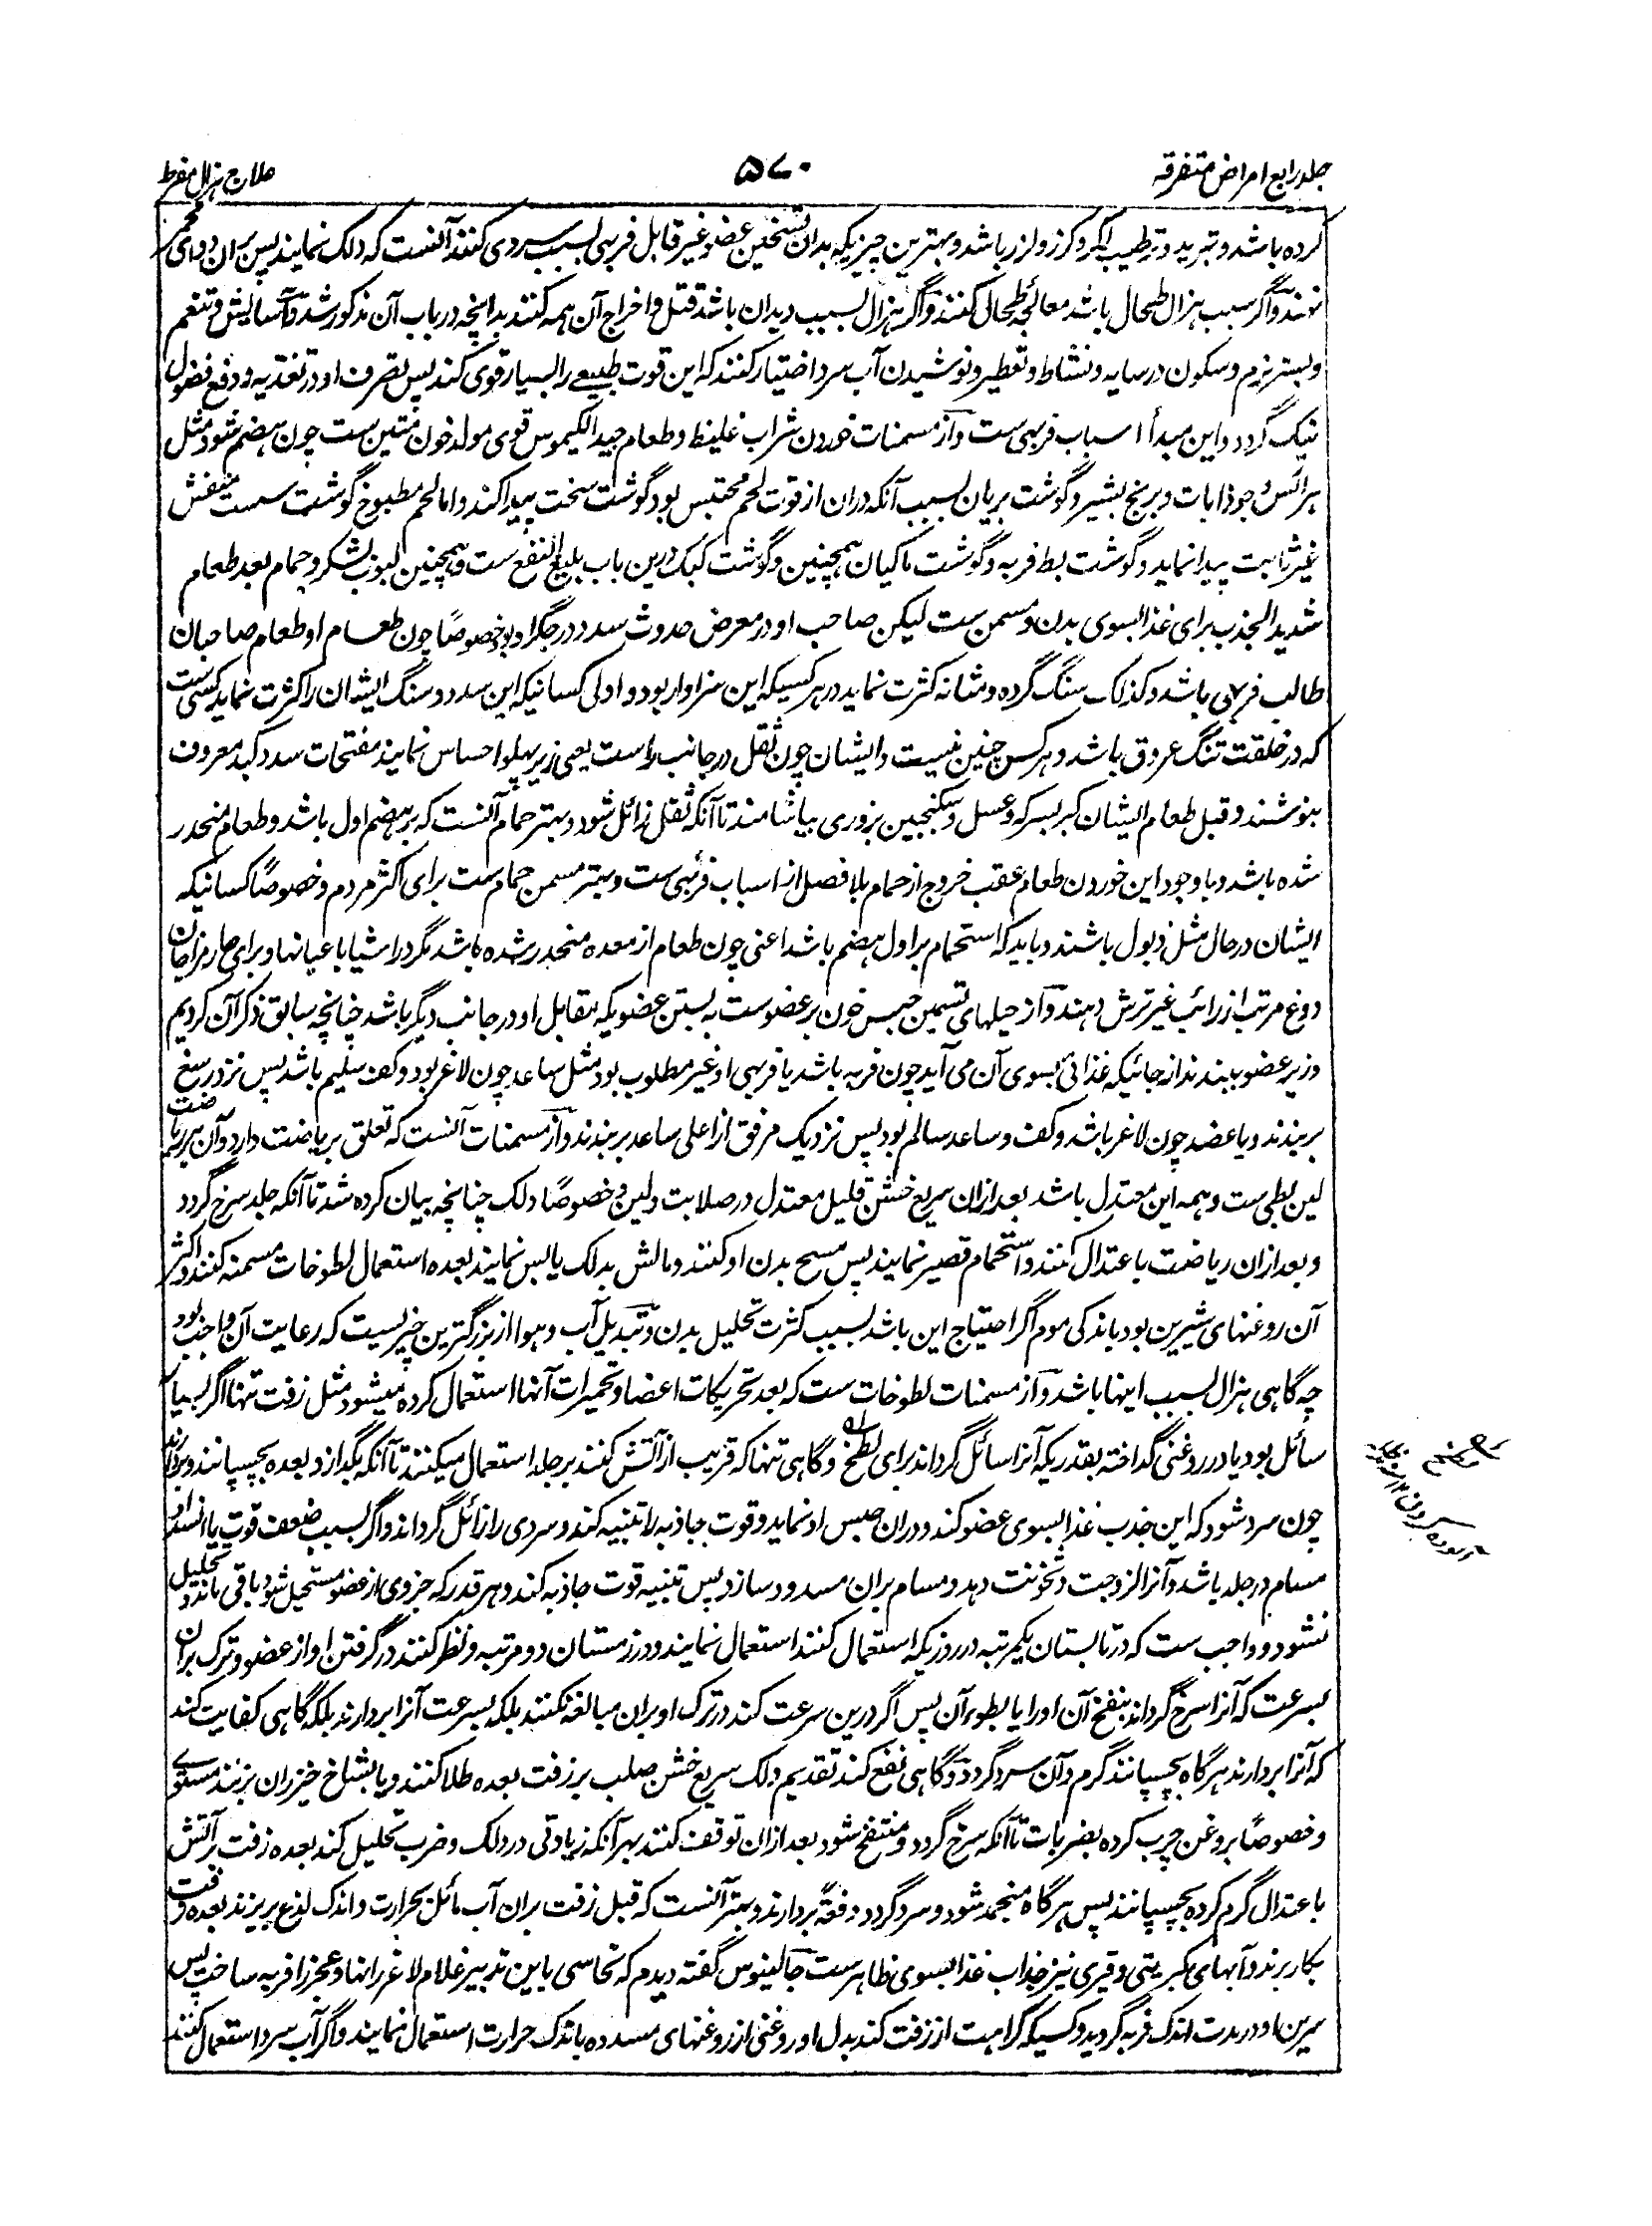 جلد رابع امراض متفرقه
۵۷۰
علاج هزال مفرط
کرده باشد و تبرید و ترطیب اگر و کزز و لزر باشد و بهترین چیزیکه بدان تسخین عضو غیر قابل فربهی بسبب سردی کنند آنست که دلک نمایند پس بران دوای محمر
نهند و اگر سبب هزال طحال باشد معالجه طحال کنند و اگر هزال بسبب دیدان باشد قتل و اخراج آن همه کنند بدانچه در باب آن مذکور شد و آسایش و تنعم
و بستر نرم و سکون در سایه و نشاط و تعطیر و نوشیدن آب سرد اختیار کنند که این قوت طبیعے را بسیار قوی کند پس تصرف او در تغذیه و دفع فضول
نیک گردد و این مبدأ اسباب فربهی ست و از مسمنات خوردن شراب غلیظ و طعام جید الکیموس قوی مولد خون متین ست چون هضم شود مثل
هرائس و جوذابات و برنج بشیر و گوشت بریان بسبب آنکه دران از قوت لحم محتبس بود گوشت سخت پیدا کند و اما لحم مطبوخ گوشت سست منفش
غیر ثابت پیدا نماید و گوشت بط فربه و گوشت ماکیان همچنین و گوشت کبک درین باب بلیغ النفع ست و همچنین لبوب بشکر و حمام بعد طعام
شدید الجذب برای غذا بسوی بدن و مسمن ست لیکن صاحب او در معرض حدوث سدد در جگر او بود خصوصاً چون طعام او طعام صاحبان
طالب فربهی باشد و کذلک سنگ گرده و مثانه کثرت نماید در هر کسیکه این سزاوار بود و اولی کسانیکه این سدد و سنگ ایشان را کثرت نماید کسی ست
که در خلقت تنگ عروق باشد و هر کس چنین نیست و ایشان چون ثقل در جانب راست یعنی زیر پهلو احساس نمایند مفتحات سدد کبد معروف
بنوشند و قبل طعام ایشان کبر بسرکه و عسل و سکنجبین بزوری بیاشامند تا آنکه ثقل زائل شود و بهتر حمام آنست که بر هضم اول باشد و طعام منحدر
شده باشد و باوجود این خوردن طعام عقب خروج از حمام بلا فصل از اسباب فربهی ست و بهتر مسمن حمام ست برای اکثر مردم و خصوصاً کسانیکه
ایشان در حال مثل ذبول باشند و باید که استحمام بر اول هضم باشد اعنی چون طعام از معده منحدر شده باشد مگر در اشیا باعیانها و برای حار مزاجان
دوغ مرتب از رائب غیر ترش دهند و از حیلهای تسمین حبس خون بر عضوست به بستن عضویکه مقابل او در جانب دیگر باشد چنانچه سابق ذکر آن کردیم
و زیر عضو ببندند از جائیکه غذائی بسوی آن می آید چون فربه باشد یا فربهی او غیر مطلوب بود مثل ساعد چون لاغر بود و کف سلیم باشد پس نزد رسغ
بربندند و یا عضد چون لاغر باشد و کف و ساعد سالم بود پس نزدیک مرفق از اعلی ساعد بربندند و از مسمنات آنست که تعلق بریاضت دارد و آن هر ریاضت
لین بطی ست و همه این معتدل باشد بعد ازان سریع خشن قلیل معتدل در صلابت و لین و خصوصاً دلک چنانچه بیان کرده شد تا آنکه جلد سرخ گردد
و بعد ازان ریاضت باعتدال کنند و استحمام قصیر نمایند پس مسح بدن او کنند و مالش بدلک یابس نمایند بعده استعمال لطوخات مسمنه کنند و اکثر
آن روغنهای شیرین بود باندکی موم اگر احتیاج این باشد بسبب کثرت تحلیل بدن و تبدیل آب و هوا از بزرگترین چیزیست که رعایت آن واجب بود
چه گاهی هزال بسبب اینها باشد و از مسمنات لطوخات ست که بعد تحریکات اعضا و تحمیرات آنها استعمال کرده میشود مثل زفت تنها اگر بسیار
سائل بود یا در روغنی گداخته بقدریکه آنرا سائل گرداند برای لطخ و گاهی تنها که قریب از آتش کنند بر جلد استعمال میکنند تا آنکه بگدازد بعده بچسپانند و بردارند
چون سرد شود که این جذب غذا بسوی عضو کند و دران حبس او نماید و قوت جاذبه را تنبیه کند و سردی را زائل گرداند و اگر بسبب ضعف قوت یا انسداد
مسام در جلد باشد و آنرا لزوجت و ثخونت دهد و مسام بران مسدود سازد پس تنبیه قوت جاذبه کند و هر قدر که جزوی از عضو مستحیل شود باقی ماند و تحلیل
نشود و واجب ست که در تابستان یکمرتبه در روزیکه استعمال کنند استعمال نمایند و در زمستان دو مرتبه و نظر کنند در گرفتن او از عضو و ترک بران
بسرعت که آنرا سرخ گرداند بنفخ آن او را یا بطوء آن پس اگر درین سرعت کند در ترک او بران مبالغه نکنند بلکه بسرعت آنرا بردارند بلکه گاهی کفایت کند
که آنرا بردارند هر گاه بچسپانند گرم و آن سرد گردد و گاهی نفع کند تقدیم دلک سریع خشن صلب بر زفت بعده طلا کنند و یا بشاخ خیزران بزنند مستوے
و خصوصاً بروغن چرب کرده بضربات تا آنکه سرخ گردد و منتفخ شود بعد ازان توقف کنند بهر آنکه زیادتی در دلک و ضرب تحلیل کند بعده زفت بر آتش
باعتدال گرم کرده بچسپانند پس هر گاه منجمد شود و سرد گردد دفعةً بردارند و بهتر آنست که قبل زفت بران آب مائل بحرارت و اندک لذع بریزند بعده زفت
بکار برند و آبهای کبریتی و قیری نیز جذاب غذا بسوی ظاهرست جالینوس گفته دیدم که نخاسی باین تدبیر غلام لاغر رانها و عجز را فربه ساخت پس
سرین او در مدت اندک فربه گردید و کسیکه کراهت از زفت کند بدل او روغنی از روغنهای مسدده باندک حرارت استعمال نمایند و اگر آب سرد استعمال کنند
لطخ
آلوده کردن ۱۲